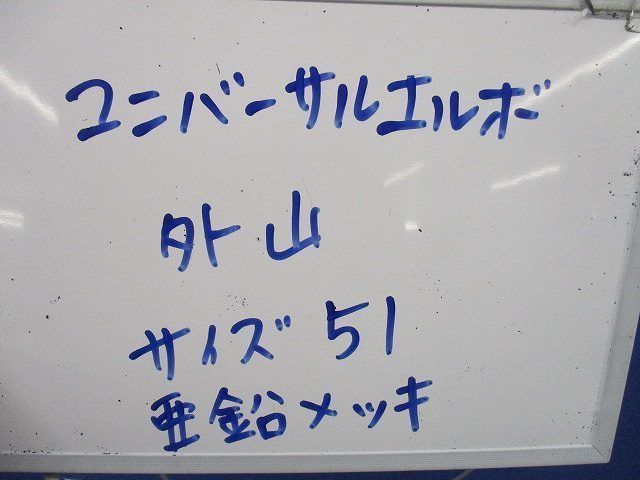 ユニバーサルエルボ
外山
サイズ 51
亜鉛メッキ